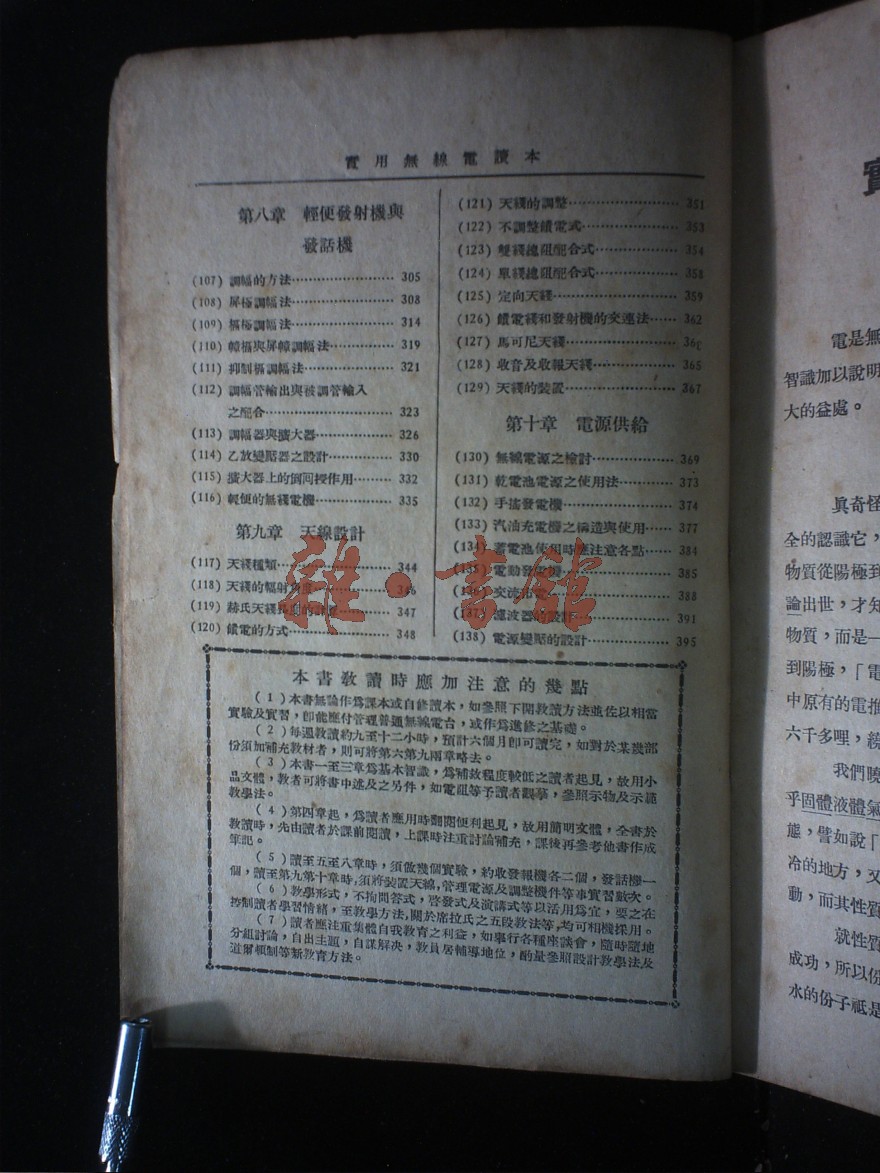 實用無線電讀本
第八章 輕便發射機與
發話機
(107) 調幅的方法 305
(108) 屏極調幅法 308
(109) 柵極調幅法 314
(110) 幛柵與屏幛調幅法 319
(111) 抑制柵調幅法 321
(112) 調幅管輸出與被調管輸入
之配合 323
(113) 調幅器與擴大器 326
(114) 乙放變壓器之設計 330
(115) 擴大器上的倒回授作用 332
(116) 輕便的無綫電機 335
第九章 天線設計
(117) 天綫種類 344
(118) 天綫的輻射角度 346
(119) 赫氏天綫長度的計算 347
(120) 饋電的方式 348
(121) 天綫的調整 351
(122) 不調整饋電式 353
(123) 雙綫總阻配合式 354
(124) 單綫總阻配合式 358
(125) 定向天綫 359
(126) 饋電綫和發射機的交連法 362
(127) 馬可尼天綫
(128) 收音及收報天綫 365
(129) 天綫的裝置 367
第十章 電源供給
(130) 無線電源之檢討 369
(131) 乾電池電源之使用法 373
(132) 手搖發電機 374
(133) 汽油充電機之構造與使用 377
(134) 蓄電池使用時應注意各點 384
(135) 電動發電機 385
(136) 交流 388
(137) 濾波器的設計 391
(138) 電源變壓的設計 395
本書教讀時應加注意的幾點
(1)本書無論作爲課本或自修讀本,如參照下開教讀方法並佐以相當
實驗及實習,卽能應付管理普通無線電台,或作爲進修之基礎。
(2)每週教讀約九至十二小時,預計六個月卽可讀完,如對於某幾部
份須加補充教材者,則可將第六第九兩章略去。
(3)本書一至三章爲基本智識,爲補救程度較低之讀者起見,故用小
品文體,教者可將書中述及之另件,如電阻等予讀者觀摹,參照示物及示範
教學法。
(4)第四章起,爲讀者應用時翻閱便利起見,故用簡明文體,全書於
教讀時,先由讀者於課前閱讀,上課時注重討論補充,課後再參考他書作成
筆記。
(5)讀至五至八章時,須做幾個實驗,約收發報機各二個,發話機一
個,讀至第九第十章時,須將裝置天線,管理電源及調整機件等事實習數次。
(6)教學形式,不拘問答式,啓發式及演講式等以活用爲宜,要之在
控制讀者學習情緒,至教學方法,關於席拉氏之五段教法等,均可相機採用。
(7)讀者應注重集體自我教育之利益,如舉行各種座談會,隨時隨地
分組討論,自出主題,自謀解决,教員居輔導地位,酌量參照設計教學法及
道爾頓制等新教育方法。
雜·書館
實
電是無
智識加以說明
大的益處。
眞奇怪
全的認識它,
物質從陽極到
論出世,才知
物質,而是一
到陽極,「電
中原有的電推
六千多哩,繞
我們曉
乎固體液體氣
態,譬如說「
冷的地方,又
動,而其性質
就性質
成功,所以份
水的份子祇是